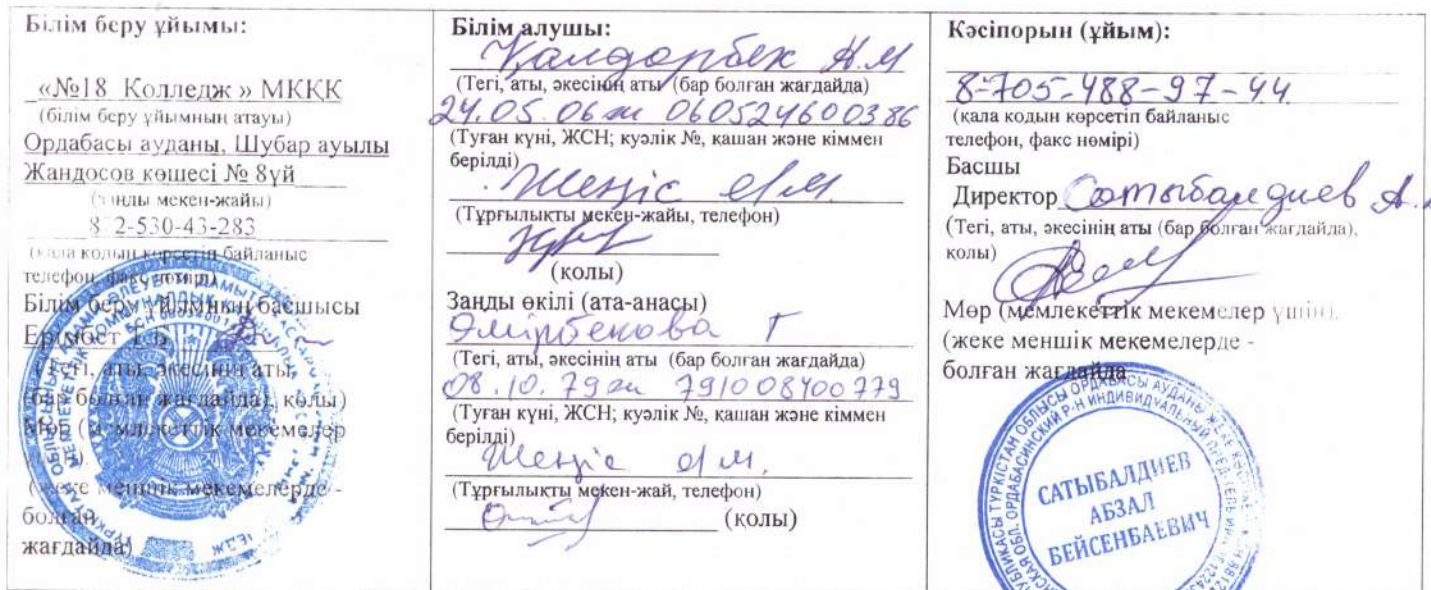 Білім беру ұйымы:
«№18 Колледж » МКҚК
(білім беру ұйымның атауы)
Ордабасы ауданы, Шубар ауылы
Жандосов көшесі № 8үй
(заңды мекен-жайы)
8 2-530-43-283
(қала кодын көрсетіп байланыс
телефон, факс нөмірі)
Білім беру ұйымның басшысы
(Тегі, аты, әкесінің аты
(бар болған жағдайда), қолы)
Мөр (мемлекеттік мекемелер
(жеке меншік мекемелерде -
болған
жағдайда)
Білім алушы:
Қалдарбек Н.М
(Тегі, аты, әкесінің аты (бар болған жағдайда)
24.05.06ж 060524600386
(Туған күні, ЖСН; куәлік №, қашан және кіммен
берілді)
Жеңіс а/м.
(Тұрғылықты мекен-жайы, телефон)
(қолы)
Заңды өкілі (ата-анасы)
Әмірбекова Г
(Тегі, аты, әкесінің аты (бар болған жағдайда)
08.10.79ж 791008400779
(Туған күні, ЖСН; куәлік №, қашан және кіммен
берілді)
Жеңіс а/м.
(Тұрғылықты мекен-жай, телефон)
(қолы)
Кәсіпорын (ұйым):
8-705-488-97-44
(қала кодын көрсетіп байланыс
телефон, факс нөмірі)
Басшы
Директор Сатыбалдиев А.
(Тегі, аты, әкесінің аты (бар болған жағдайда),
қолы)
Мөр (мемлекеттік мекемелер үшін),
(жеке меншік мекемелерде -
болған жағдайда
САТЫБАЛДИЕВ
АБЗАЛ
БЕЙСЕНБАЕВИЧ